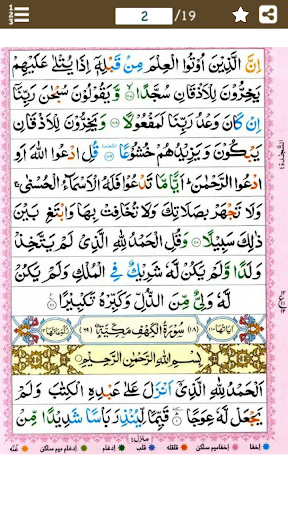 2 /19
اِنَّ الَّذِيْنَ اُوْتُوا الْعِلْمَ مِنْ قَبْلِهٖٓ اِذَا يُتْلٰى عَلَيْهِمْ
يَخِرُّوْنَ لِلْاَذْقَانِ سُجَّدًا ۙ وَّيَقُوْلُوْنَ سُبْحٰنَ رَبِّنَآ
اِنْ كَانَ وَعْدُ رَبِّنَا لَمَفْعُوْلًا وَيَخِرُّوْنَ لِلْاَذْقَانِ
يَبْكُوْنَ وَيَزِيْدُهُمْ خُشُوْعًا ۩ قُلِ ادْعُوا اللّٰهَ اَوِ
ادْعُوا الرَّحْمٰنَ ؕ اَيًّا مَّا تَدْعُوْا فَلَهُ الْاَسْمَآءُ الْحُسْنٰى ۚ
وَلَا تَجْهَرْ بِصَلَاتِكَ وَلَا تُخَافِتْ بِهَا وَابْتَغِ بَيْنَ
ذٰلِكَ سَبِيْلًا وَقُلِ الْحَمْدُ لِلّٰهِ الَّذِيْ لَمْ يَتَّخِذْ
وَلَدًا وَّلَمْ يَكُنْ لَّهٗ شَرِيْكٌ فِي الْمُلْكِ وَلَمْ يَكُنْ
لَّهٗ وَلِيٌّ مِّنَ الذُّلِّ وَكَبِّرْهُ تَكْبِيْرًا
اٰيَاتُهَا ١١٠ (١٨) سُوْرَةُ الْكَهْفِ مَكِّيَّةٌ (٦٩) رُكُوْعَاتُهَا ١٢
بِسْمِ اللّٰهِ الرَّحْمٰنِ الرَّحِيْمِ
اَلْحَمْدُ لِلّٰهِ الَّذِيْٓ اَنْزَلَ عَلٰى عَبْدِهِ الْكِتٰبَ وَلَمْ
يَجْعَلْ لَّهٗ عِوَجًا قَيِّمًا لِّيُنْذِرَ بَاْسًا شَدِيْدًا مِّنْ
منزل٤
اخفا اخفامیم ساکن قلقلہ قلب ادغام ادغام میم ساکن غُنّہ